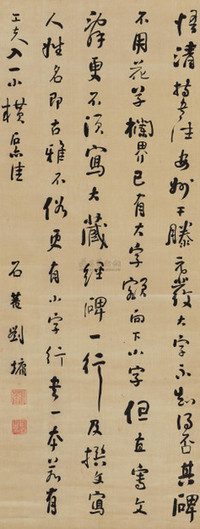 惟清持書往安州下勝方發大字不知得否其碑
不用花草欄界已有大字額向下小字但直寫文
辭更不須寫大藏經碑一行及撰文寫
人姓名即古雅不俗更有小字行書一本若有
工夫入一小橫石亦佳
石菴劉墉